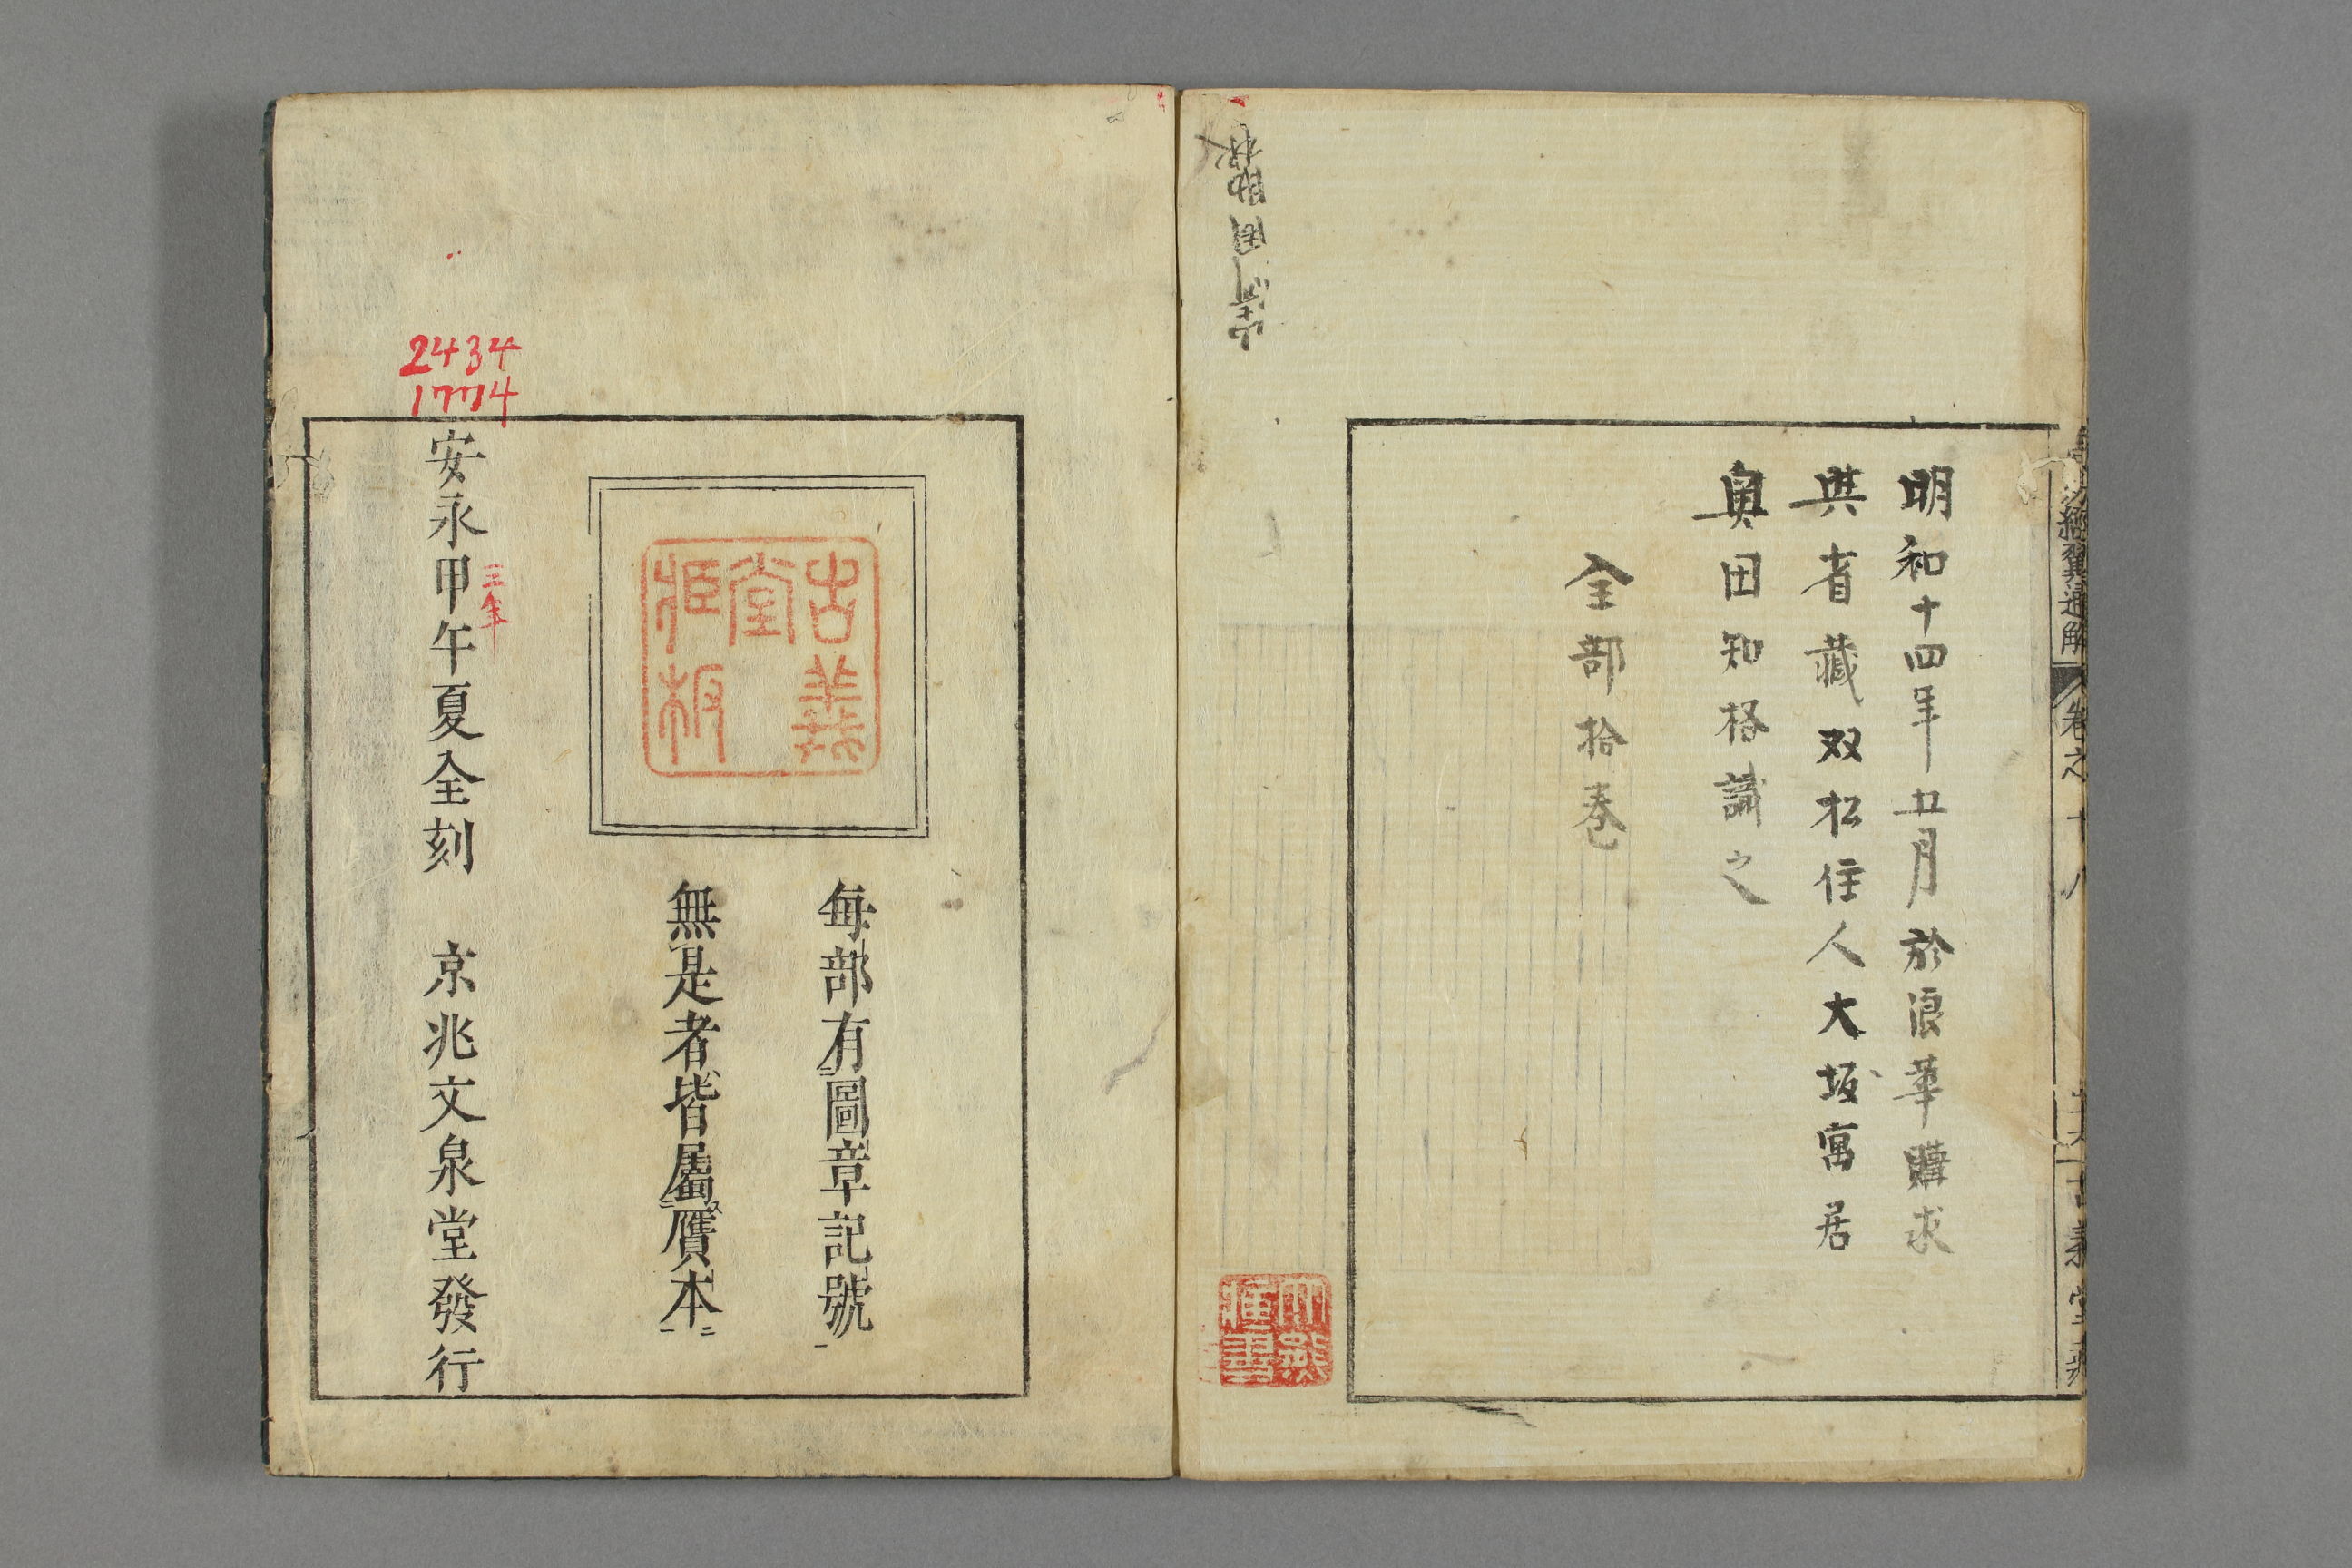 經翼通解
卷之十八
古義堂藏
明和十四年五月於浪華購求
與省藏双松住人大坂寓居
奥田知格識之
全部拾卷
古義
堂
藏板
每部有圖章記號
無是者皆屬贋本
2434
1774
安永甲午夏全刻 京兆文泉堂發行
三年